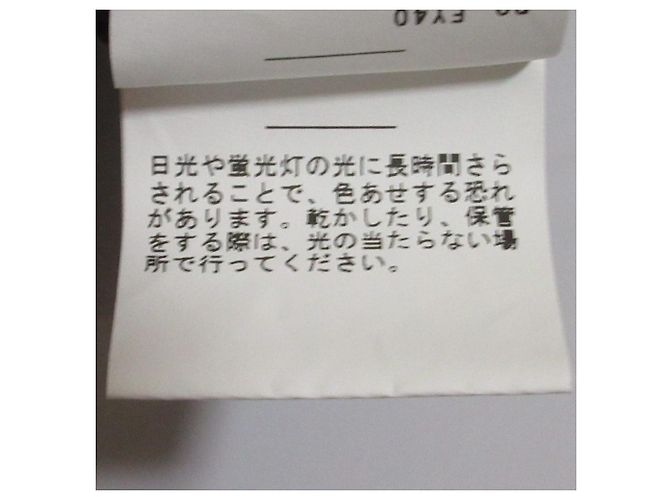 EY40
日光や蛍光灯の光に長時間さら
されることで、色あせする恐れ
があります。乾かしたり、保管
をする際は、光の当たらない場
所で行ってください。